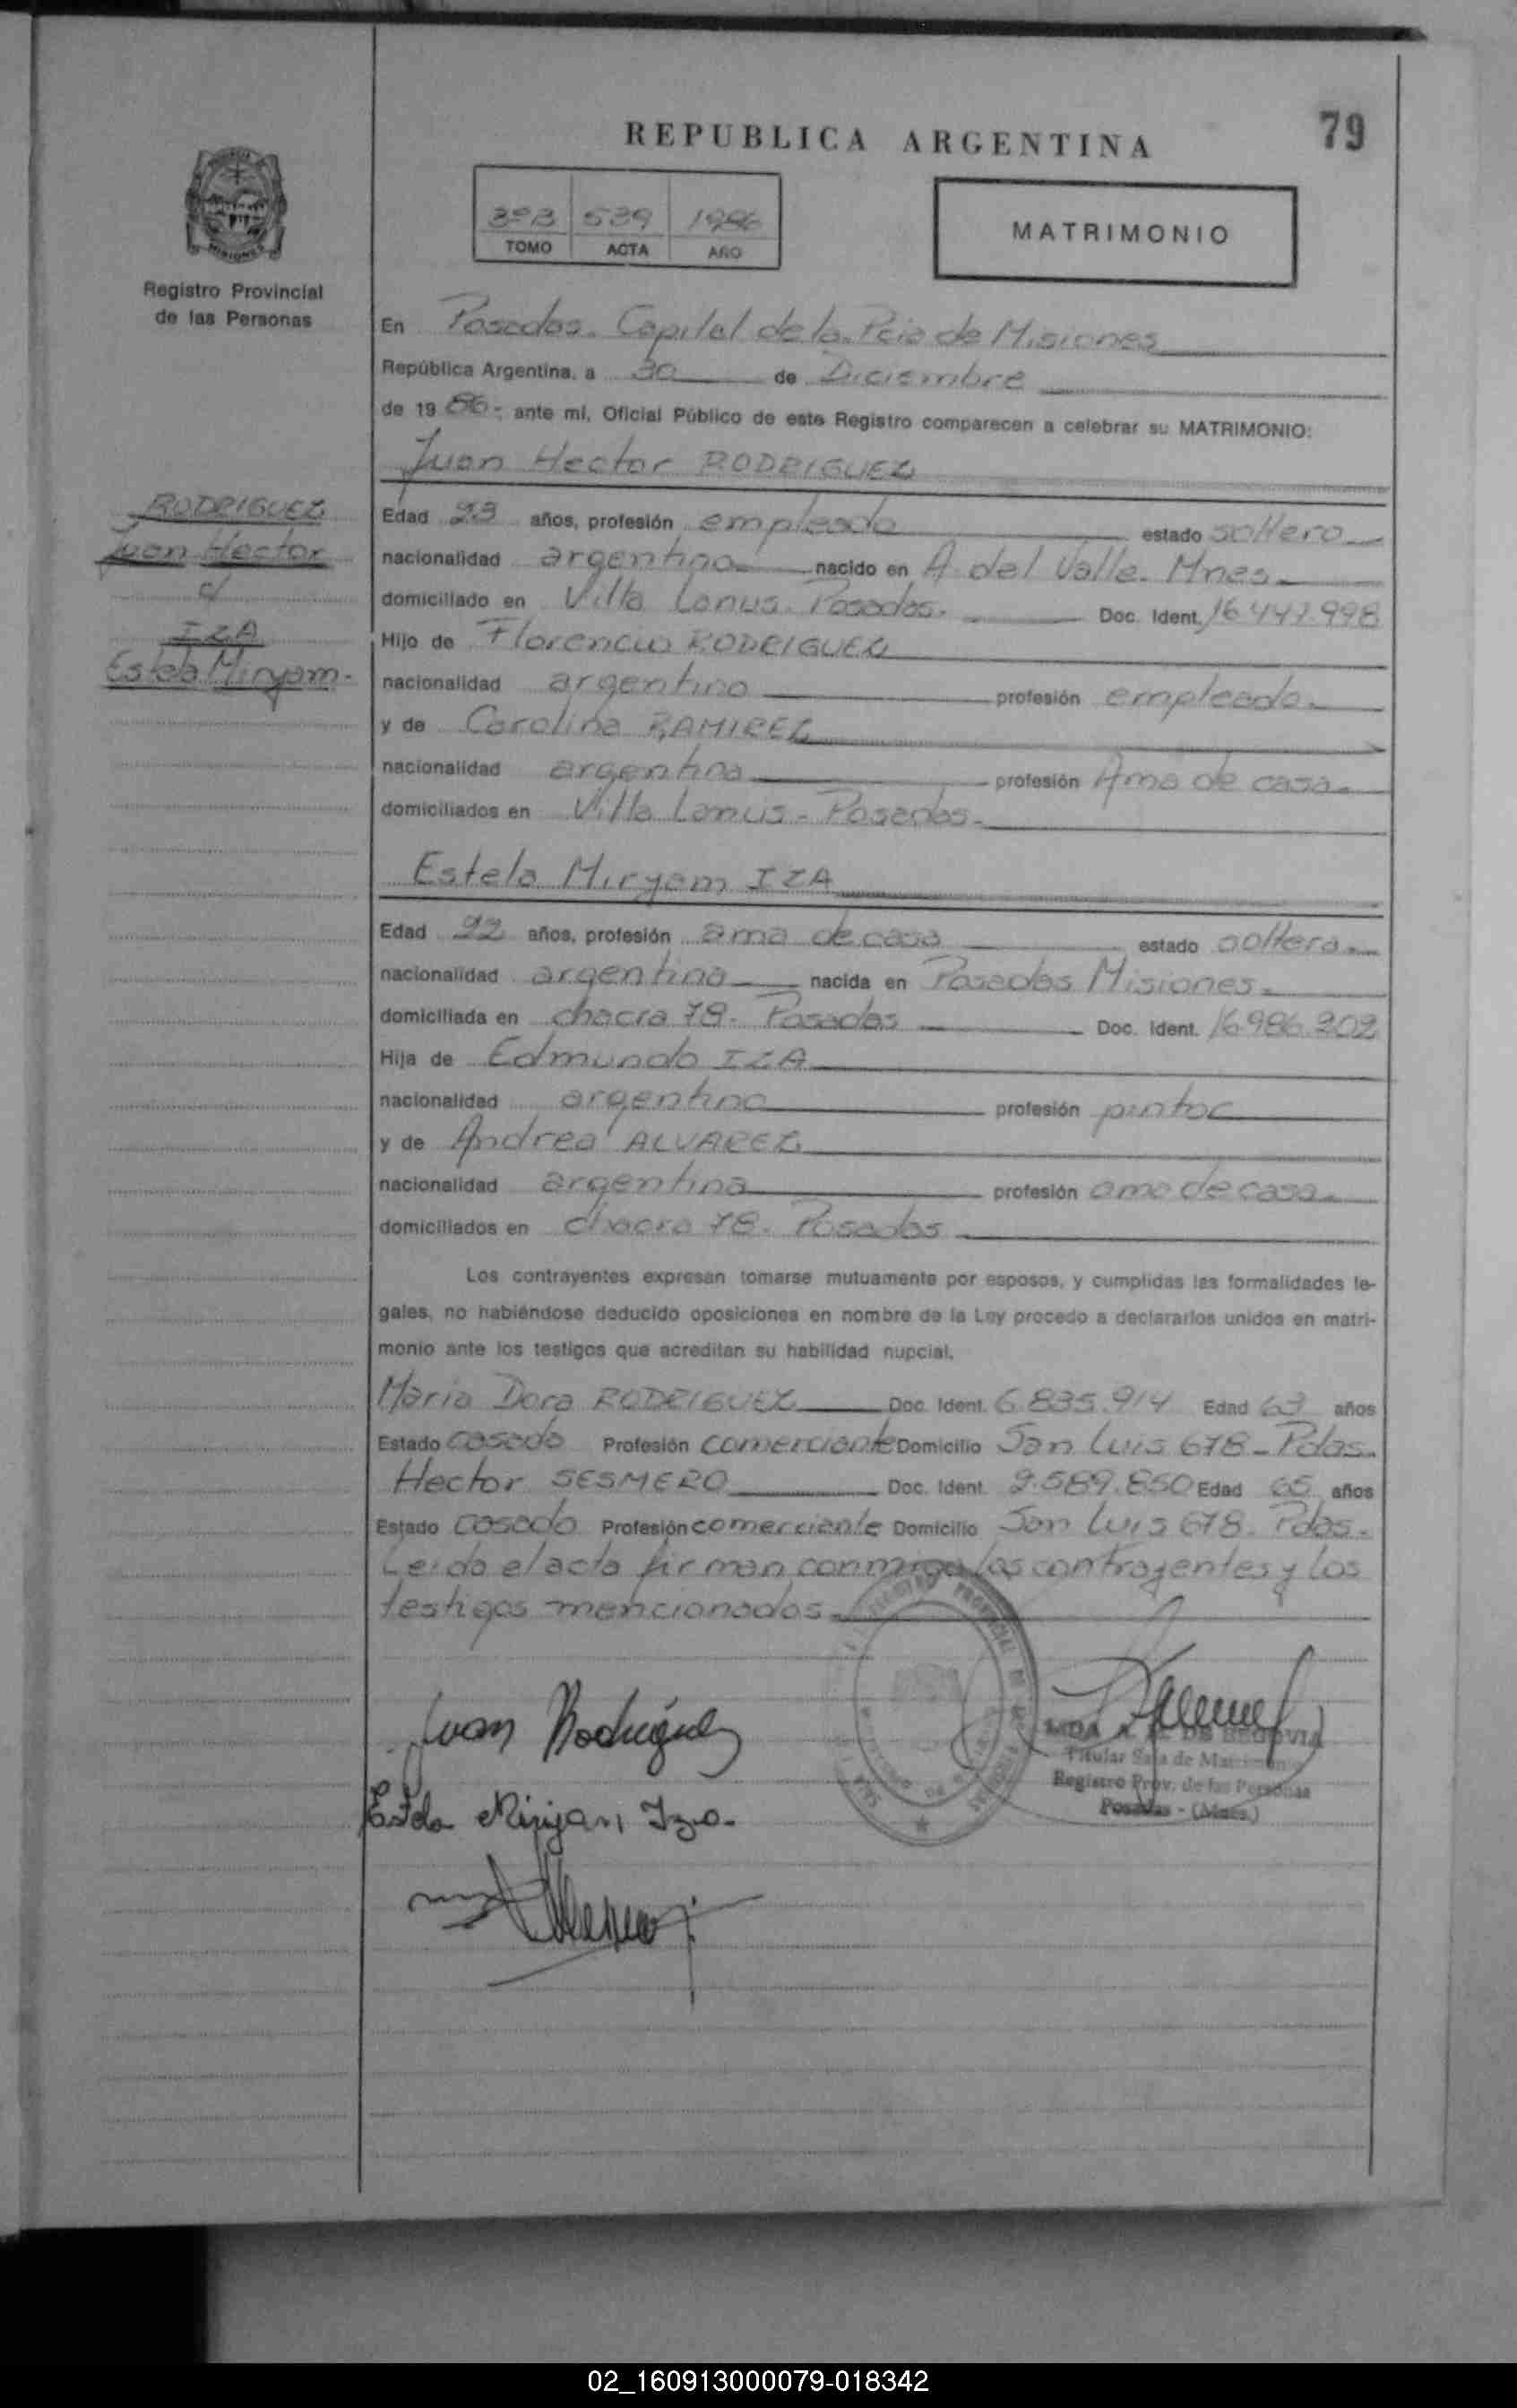 79
REPUBLICA ARGENTINA
3º B 539 1986
TOMO ACTA AÑO
MATRIMONIO
Registro Provincial
de las Personas
En Posadas. Capital de la Pcia de Misiones
República Argentina, a 30 de Diciembre
de 19 86- ante mi, Oficial Público de este Registro comparecen a celebrar su MATRIMONIO:
Juan Hector RODRIGUEZ
RODRIGUEZ
Juan Hector
c/
IZA
Estela Miryam-
Edad 23 años, profesión empleado estado soltero
nacionalidad argentino nacido en A. del Valle. Mnes
domiciliado en Villa Lanus. Posadas. Doc. Ident. 16.447.998
Hijo de Florencio RODRIGUEZ
nacionalidad argentino profesión empleado
y de Carolina RAMIREZ
nacionalidad argentina profesión Ama de casa
domiciliados en Villa Lanus - Posadas
Estela Miryam IZA
Edad 22 años, profesión ama de casa estado soltera
nacionalidad argentina nacida en Posadas Misiones
domiciliada en chacra 78. Posadas Doc. Ident. 16.986.202
Hija de Edmundo IZA
nacionalidad argentino profesión pintor
y de Andrea ALVAREZ
nacionalidad argentina profesión ama de casa
domiciliados en chacra 78. Posadas
Los contrayentes expresan tomarse mutuamente por esposos, y cumplidas las formalidades le-
gales, no habiéndose deducido oposiciones en nombre de la Ley procedo a declararlos unidos en matri-
monio ante los testigos que acreditan su habilidad nupcial.
Maria Dora RODRIGUEZ Doc. Ident. 6.835.914 Edad 63 años
Estado casada Profesión comerciante Domicilio San Luis 678 - Pdas.
Hector SESMERO Doc. Ident. 9.589.850 Edad 65 años
Estado casado Profesión comerciante Domicilio San Luis 678. Pdas.
Leida el acta firman conmigo los contrayentes y los
testigos mencionados
Juan Rodriguez
Estela Miryam Iza.
DE SEGOVIA
Titular Sala de Matrimonio
Registro Prov. de las Personas
Posadas - (Mnes.)
02_160913000079-018342